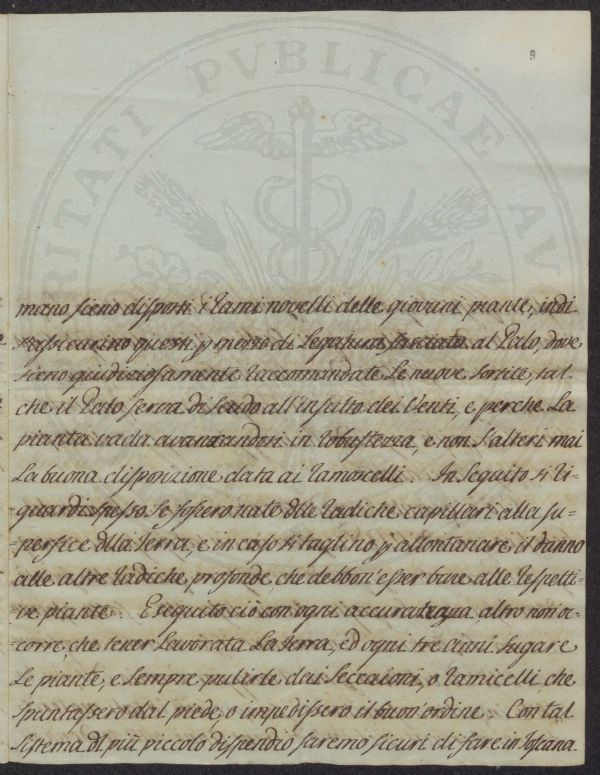 9
mano sieno disposti i rami novelli delle giovani piante, indi
s'assicurino questi p mezzo di Legatura fasciata al Palo, dove
sieno giudiziosamente raccomandate Le nuove sortite, tal
che il Palo serva di scudo all'insulto dei Venti, e perche La
pianta vada avanzandosi in robustezza, e non s'alteri mai
La buona disposizione data ai ramoscelli. In seguito si ri-
-guardi spesso se fossero nate dlle radiche capillari alla su-
-perfice dlla Terra, e in caso si taglino p allontanare il danno
alle altre radiche, profonde, che debbon'esser base alle respetti-
-ve piante. Eseguito ciò con ogni accuratezza altro non oc-
-corre, che tener Lavorata La terra, ed ogni tre anni sugare
Le piante, e sempre pulirle dai Seccaioni, o ramicelli, che
spuntassero dal piede, o impedissero il buon'ordine. Con tal
sistema dl più piccolo dispendio saremo sicuri di fare in Toscana